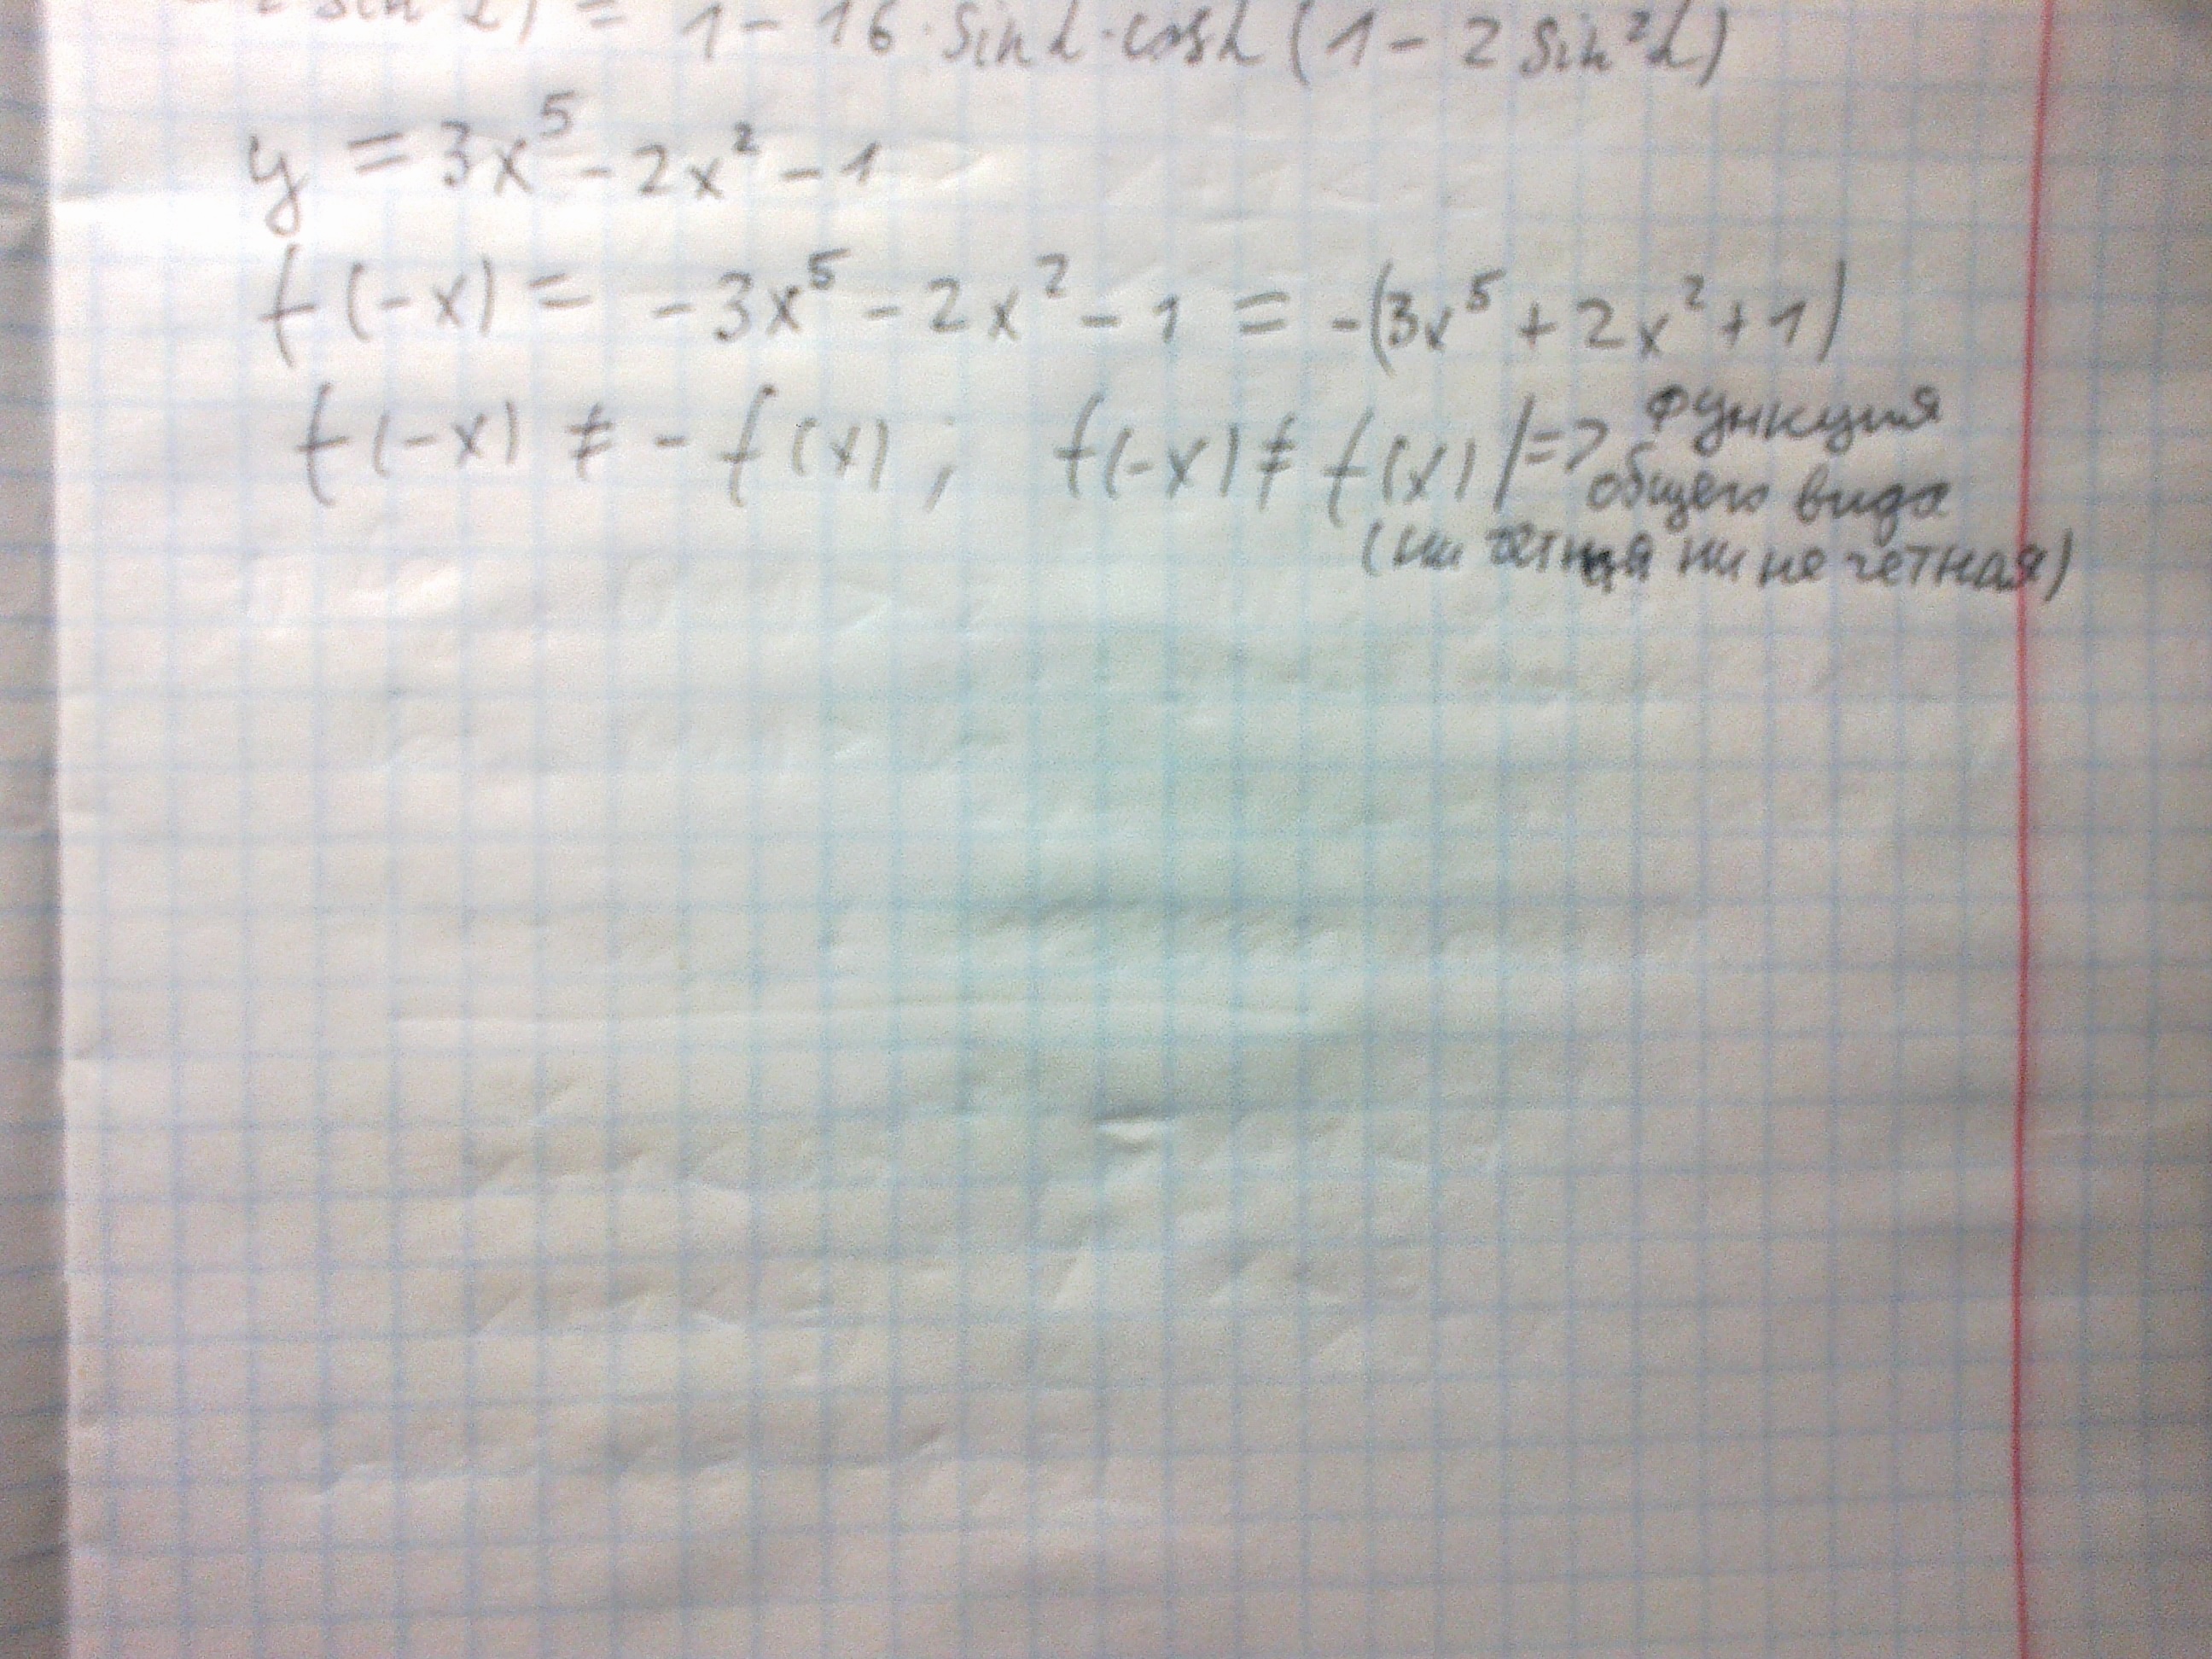 2 sin² α) = 1 - 16 · sin α · cos α (1 - 2 sin² α)
y = 3x⁵ - 2x² - 1
f(-x) = -3x⁵ - 2x² - 1 = -(3x⁵ + 2x² + 1)
f(-x) ≠ -f(x); f(-x) ≠ f(x) |=> функция
общего вида
(ни четная ни не четная)